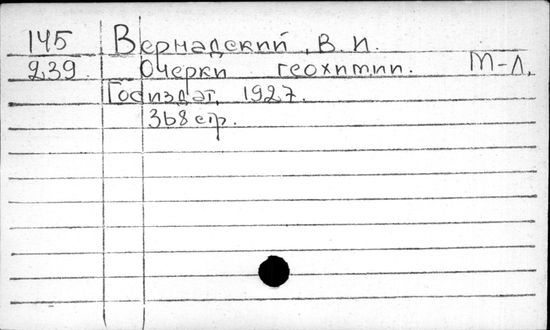 145 Вернадский, В. И.
239 Очерки геохимии. М-Л,
Госиздат, 1927.
368 стр.